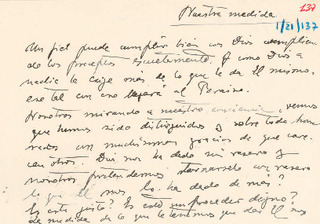 Nuestra medida
137
1/21/137
Un fiel puede cumplir bien con Dios cumplien
do los preceptos escuetamente. Y como Dios a
nadie le exije más de lo que le da El mismo,
ese tal con eso llegará al Paraiso.
Nosotros mirando a nuestra conciencia, vemos
que hemos sido distinguidos y sobre todo hon
rados con muchísimas gracias de que care
cen otros. Dios nos ha dado sin reserva y
nosotros pretendemos con reserva
lo que El nos lo ha dado de más?
Es esto justo? Es esto un proceder digno?
de lo que le tenemos que dar El nos